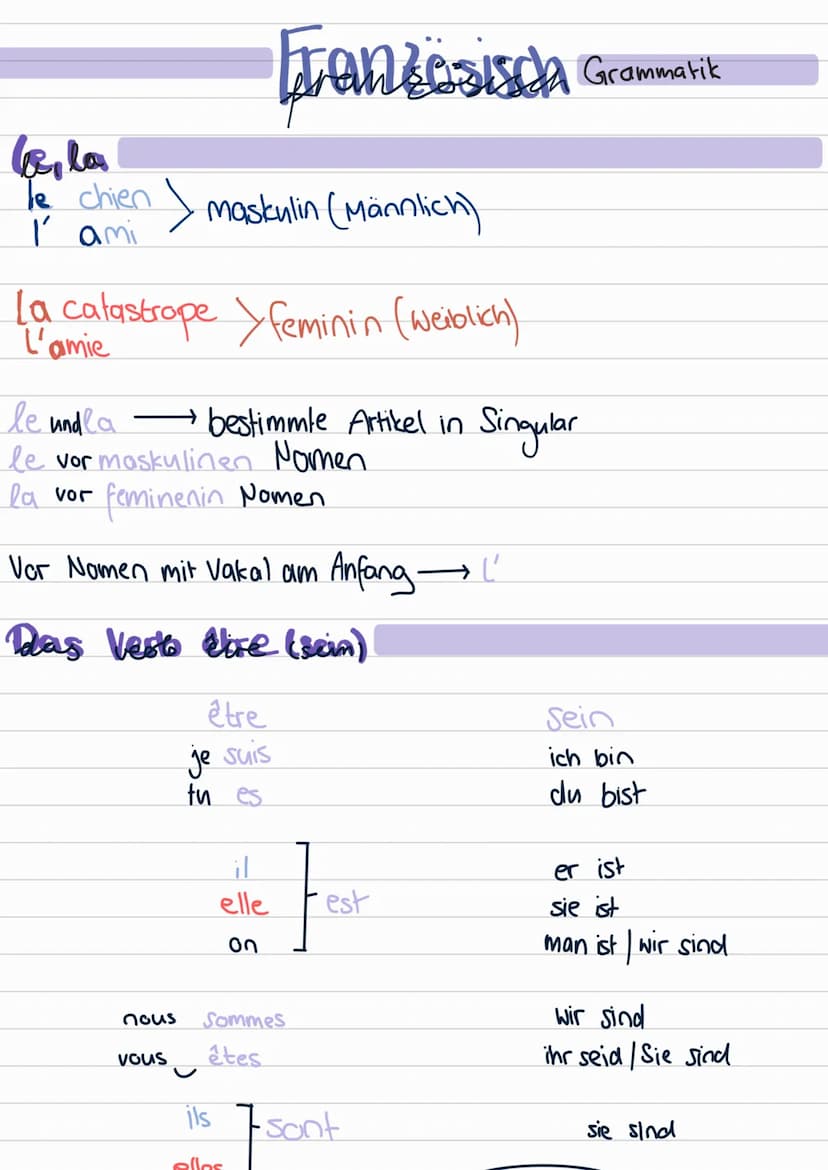 Französisch Grammatik
le, la
le chien
l' ami
maskulin (Männlich)
La catastrope
L'amie
feminin (weiblich)
le und la → bestimmte Artikel in Singular
le vor maskulinen Nomen
la vor feminenin Nomen
Vor Nomen mit Vakal am Anfang → L'
Das Verb être (sein)
être sein
je suis ich bin
tu es du bist
il er ist
elle est sie ist
on man ist | wir sind
nous sommes wir sind
vous êtes ihr seid / Sie sind
ils sont sie sind
elles